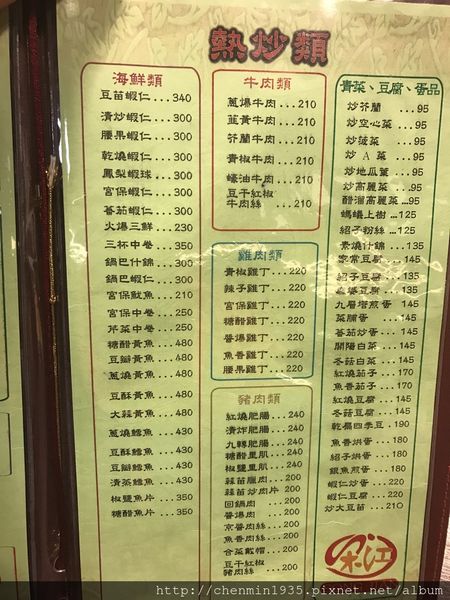 熱炒類
海鮮類
豆苗蝦仁...340
清炒蝦仁...300
腰果蝦仁...300
乾燒蝦仁...300
鳳梨蝦球...300
宮保蝦仁...300
番茄蝦仁...300
火爆三鮮...230
三杯中卷...350
鍋巴什錦...350
鍋巴蝦仁...350
宮保魷魚...210
宮保中卷...250
芹菜中卷...250
糖醋黃魚...480
豆瓣黃魚...480
蔥燒黃魚...480
豆酥黃魚...480
大蒜黃魚...480
蔥燒鱈魚...430
豆酥鱈魚...430
豆瓣鱈魚...430
清蒸鱈魚...430
椒鹽魚片...350
糖醋魚片...350
牛肉類
蔥爆牛肉...210
韮黃牛肉...210
芥蘭牛肉...210
青椒牛肉...210
蠔油牛肉...210
豆干紅椒
牛肉絲...210
雞肉類
青椒雞丁...220
辣子雞丁...220
宮保雞丁...220
糖醋雞丁...220
醬爆雞丁...220
魚香雞丁...220
腰果雞丁...220
豬肉類
紅燒肥腸...240
清炸肥腸...240
九轉肥腸...240
糖醋里肌...240
椒鹽里肌...240
蒜苗臘肉...200
蒜苗炒肉片 200
回鍋肉...200
醬爆肉...200
京醬肉絲...200
魚香肉絲...200
合菜戴帽...200
豆干紅椒
豬肉絲...200
青菜、豆腐、蛋品
炒芥蘭...95
炒空心菜...95
炒菠菜...95
炒 A 菜...95
炒地瓜葉...95
炒高麗菜...95
醋溜高麗菜...95
螞蟻上樹...125
紹子粉絲...125
素燒什錦...135
家常豆腐...135
紹子豆腐...135
麻婆豆腐...135
九層塔煎蛋 145
菜脯蛋...145
番茄炒蛋...145
開陽白菜...145
冬菇白菜...145
紅燒茄子...170
魚香茄子...170
紅燒豆腐...145
冬菇豆腐...145
乾扁四季豆...
魚香烘蛋...180
紹子烘蛋...190
銀魚煎蛋...180
蝦仁炒蛋...
蝦仁豆腐...
炒大豆苗...
宋江
http://chenmin1935.pixnet.net/album